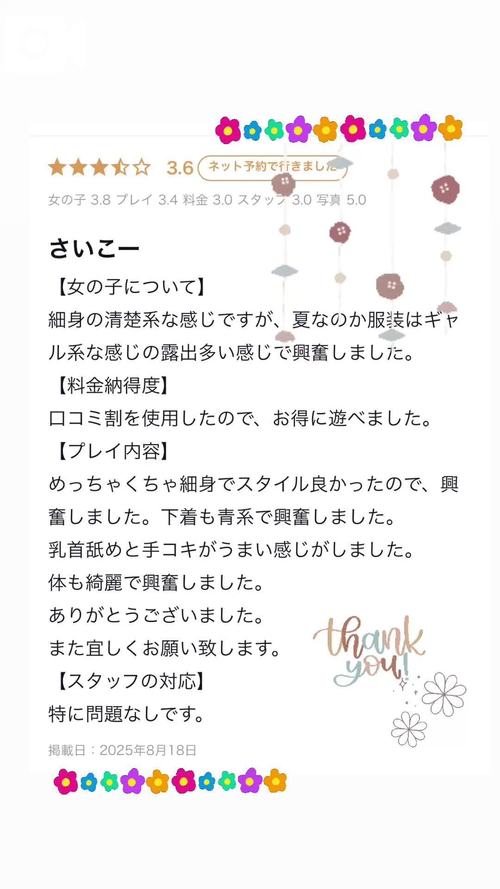 3.6 ネット予約で行きました
女の子 3.8 プレイ 3.4 料金 3.0 スタッフ 3.0 写真 5.0
さいこー
【女の子について】
細身の清楚系な感じですが、夏なのか服装はギャ
ル系な感じの露出多い感じで興奮しました。
【料金納得度】
口コミ割を使用したので、お得に遊べました。
【プレイ内容】
めっちゃくちゃ細身でスタイル良かったので、興
奮しました。下着も青系で興奮しました。
乳首舐めと手コキがうまい感じがしました。
体も綺麗で興奮しました。
ありがとうございました。
また宜しくお願い致します。
thank
you!
【スタッフの対応】
特に問題なしです。
掲載日：2025年8月18日